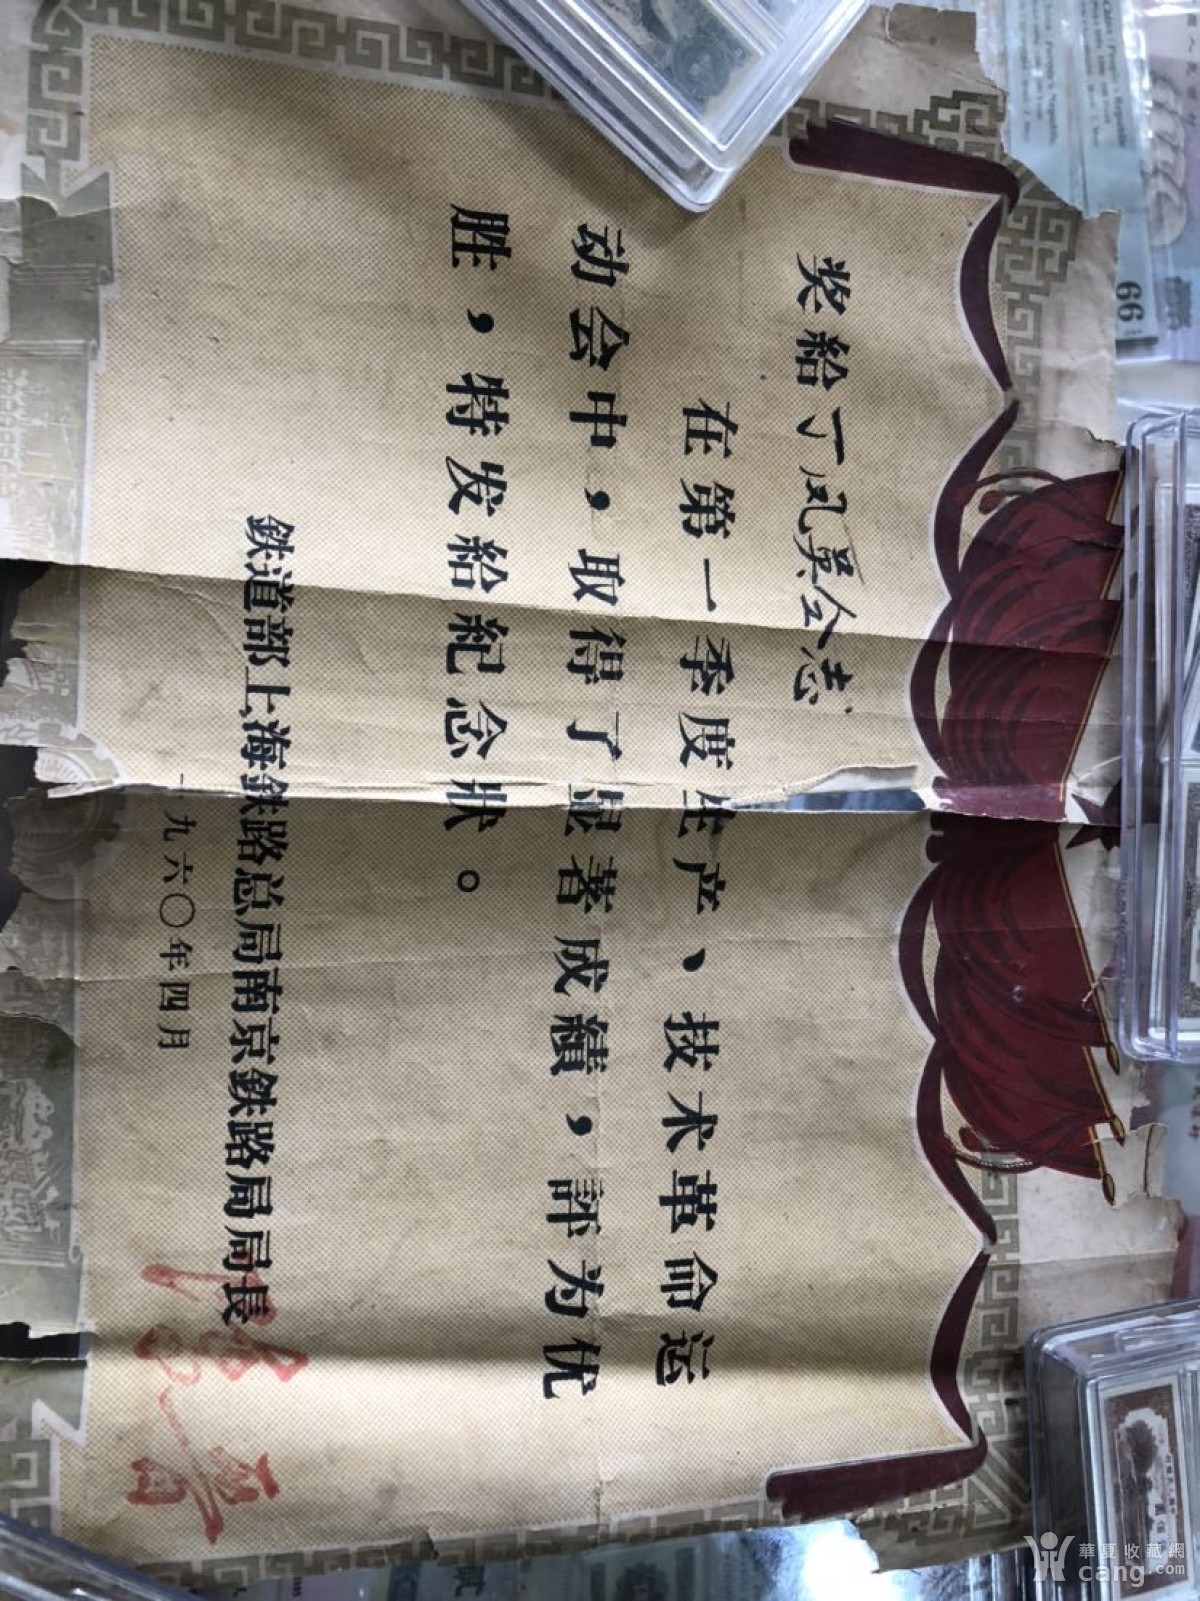 奖給丁凤英仝志
在第一季度生产、技术革命运
动会中，取得了显著成績，評为优
胜，特发給紀念状。
鉄道部上海鉄路总局南京鉄路局局長
一九六〇年四月
66
華夏收藏網
cang.com